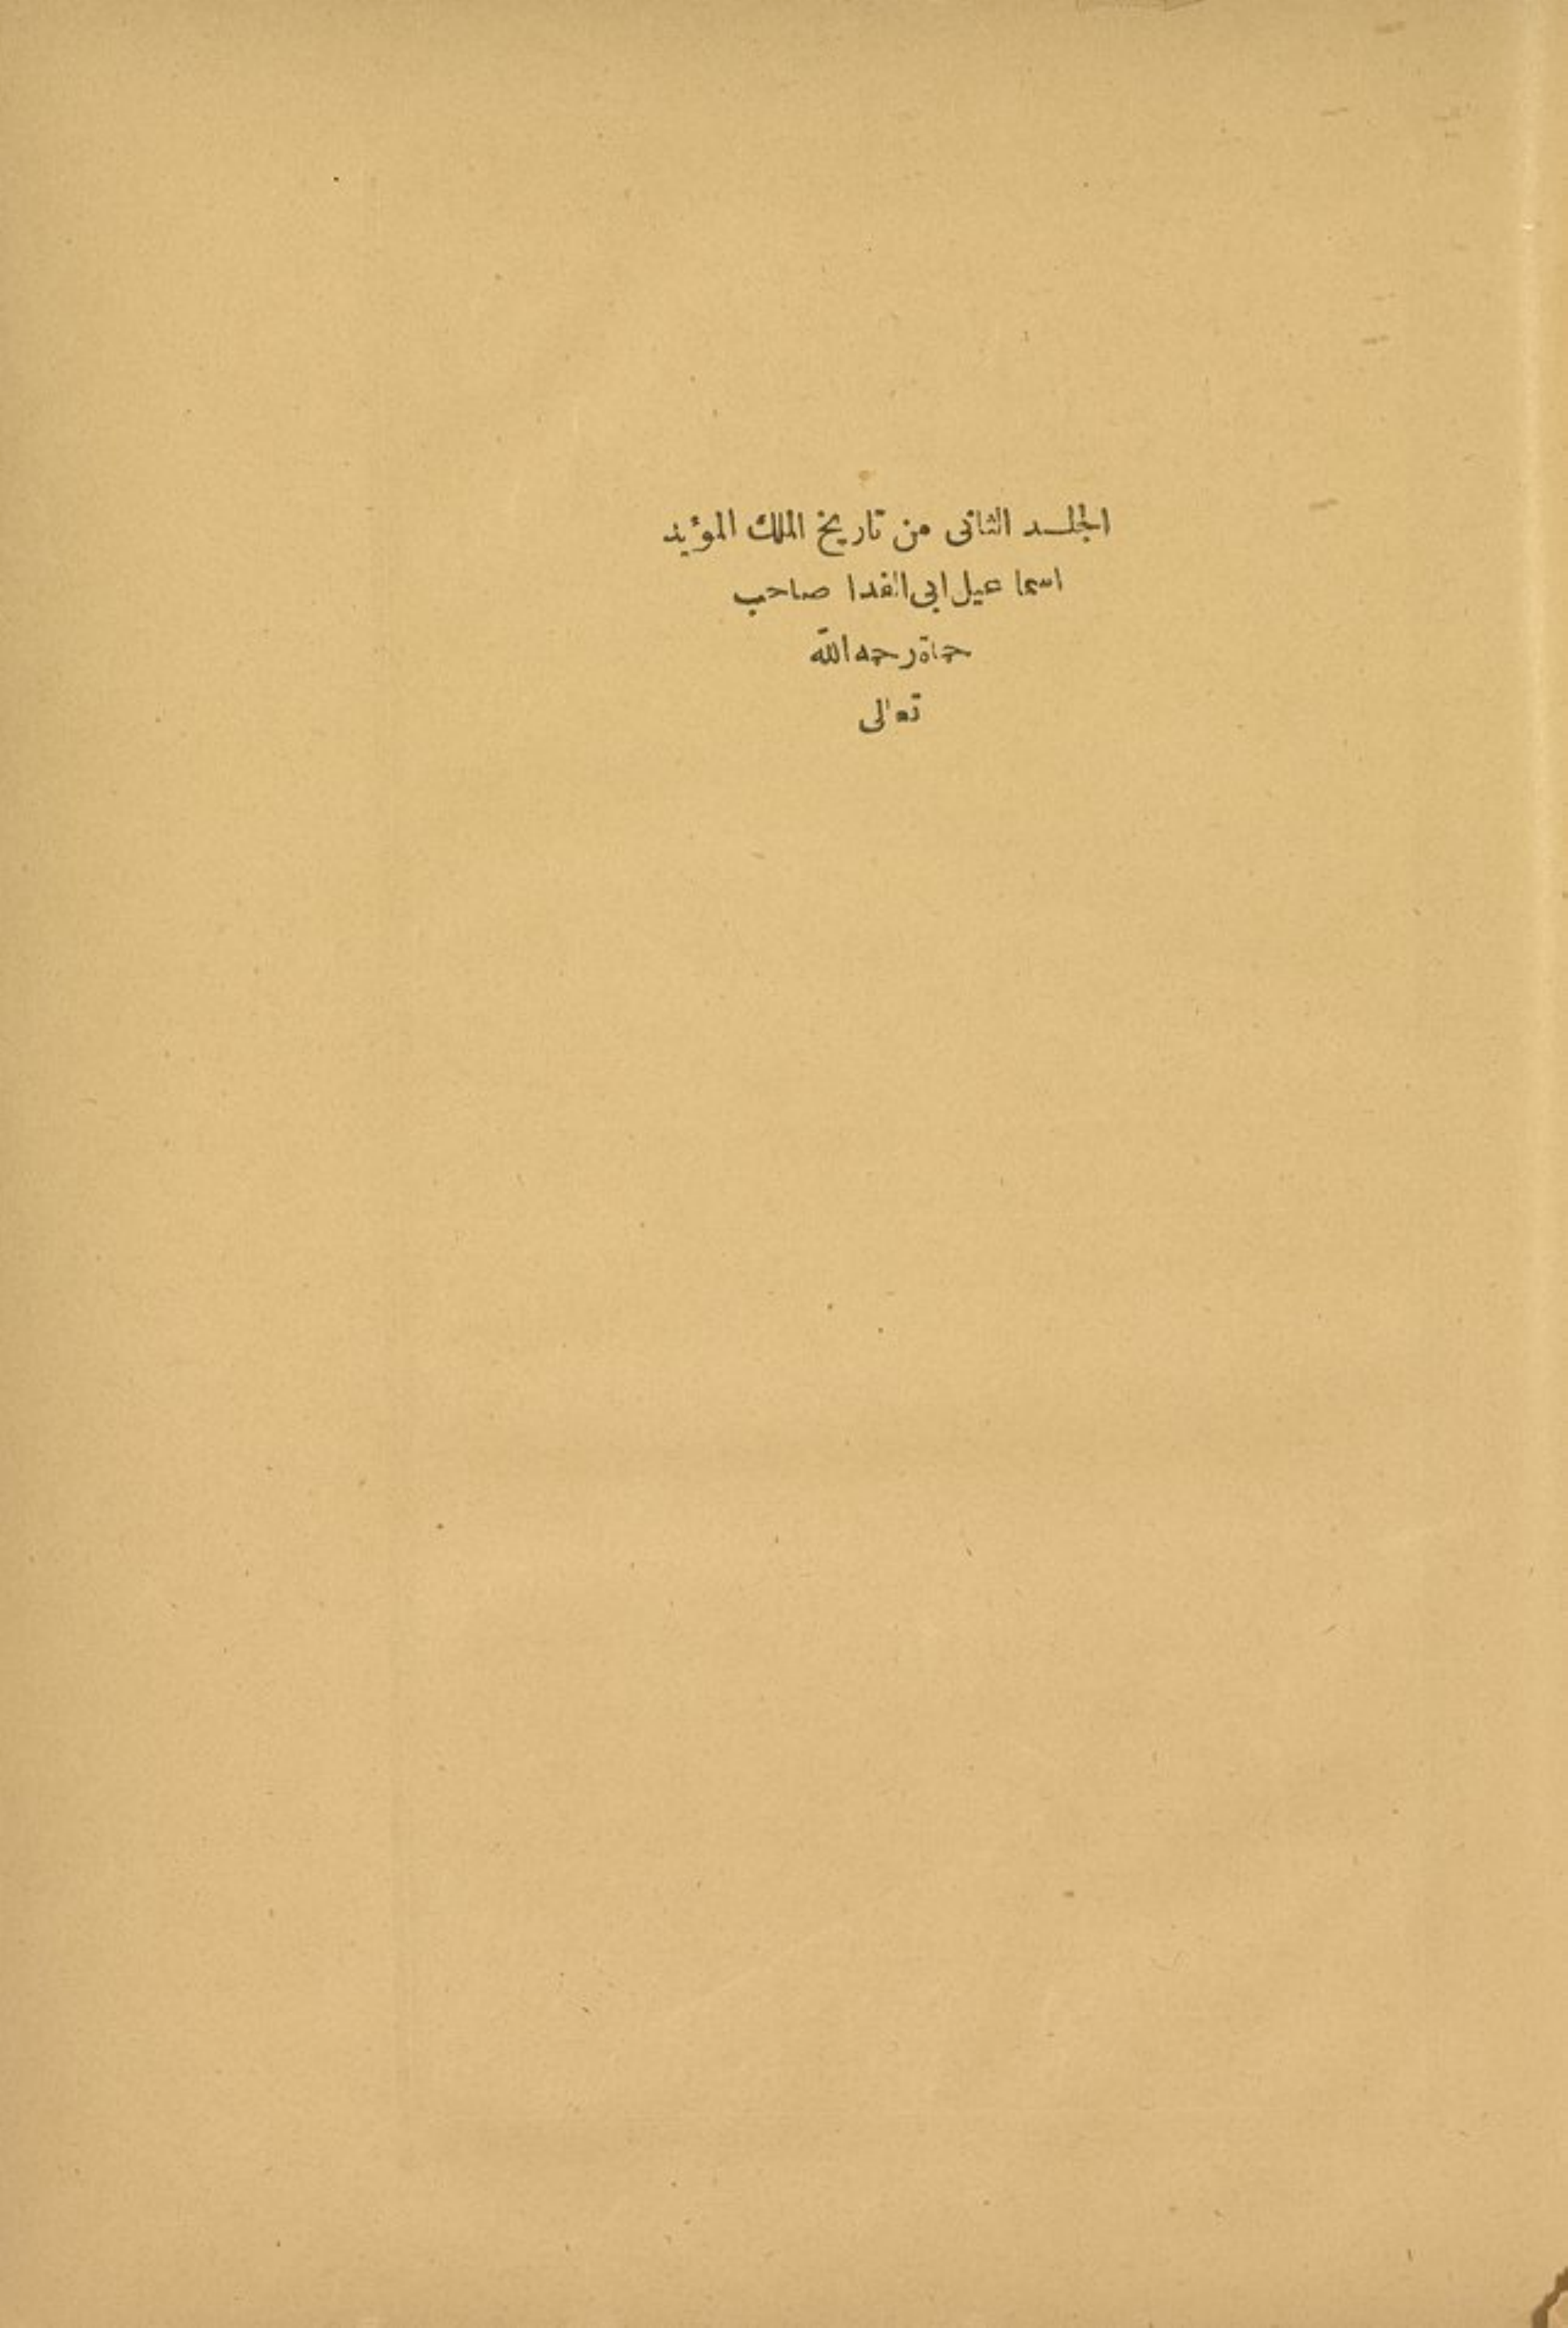 الجلد الثانى من تاريخ الملك المؤيد
اسماعيل ابى الفدا صاحب
حماة رحمه الله
تعالى